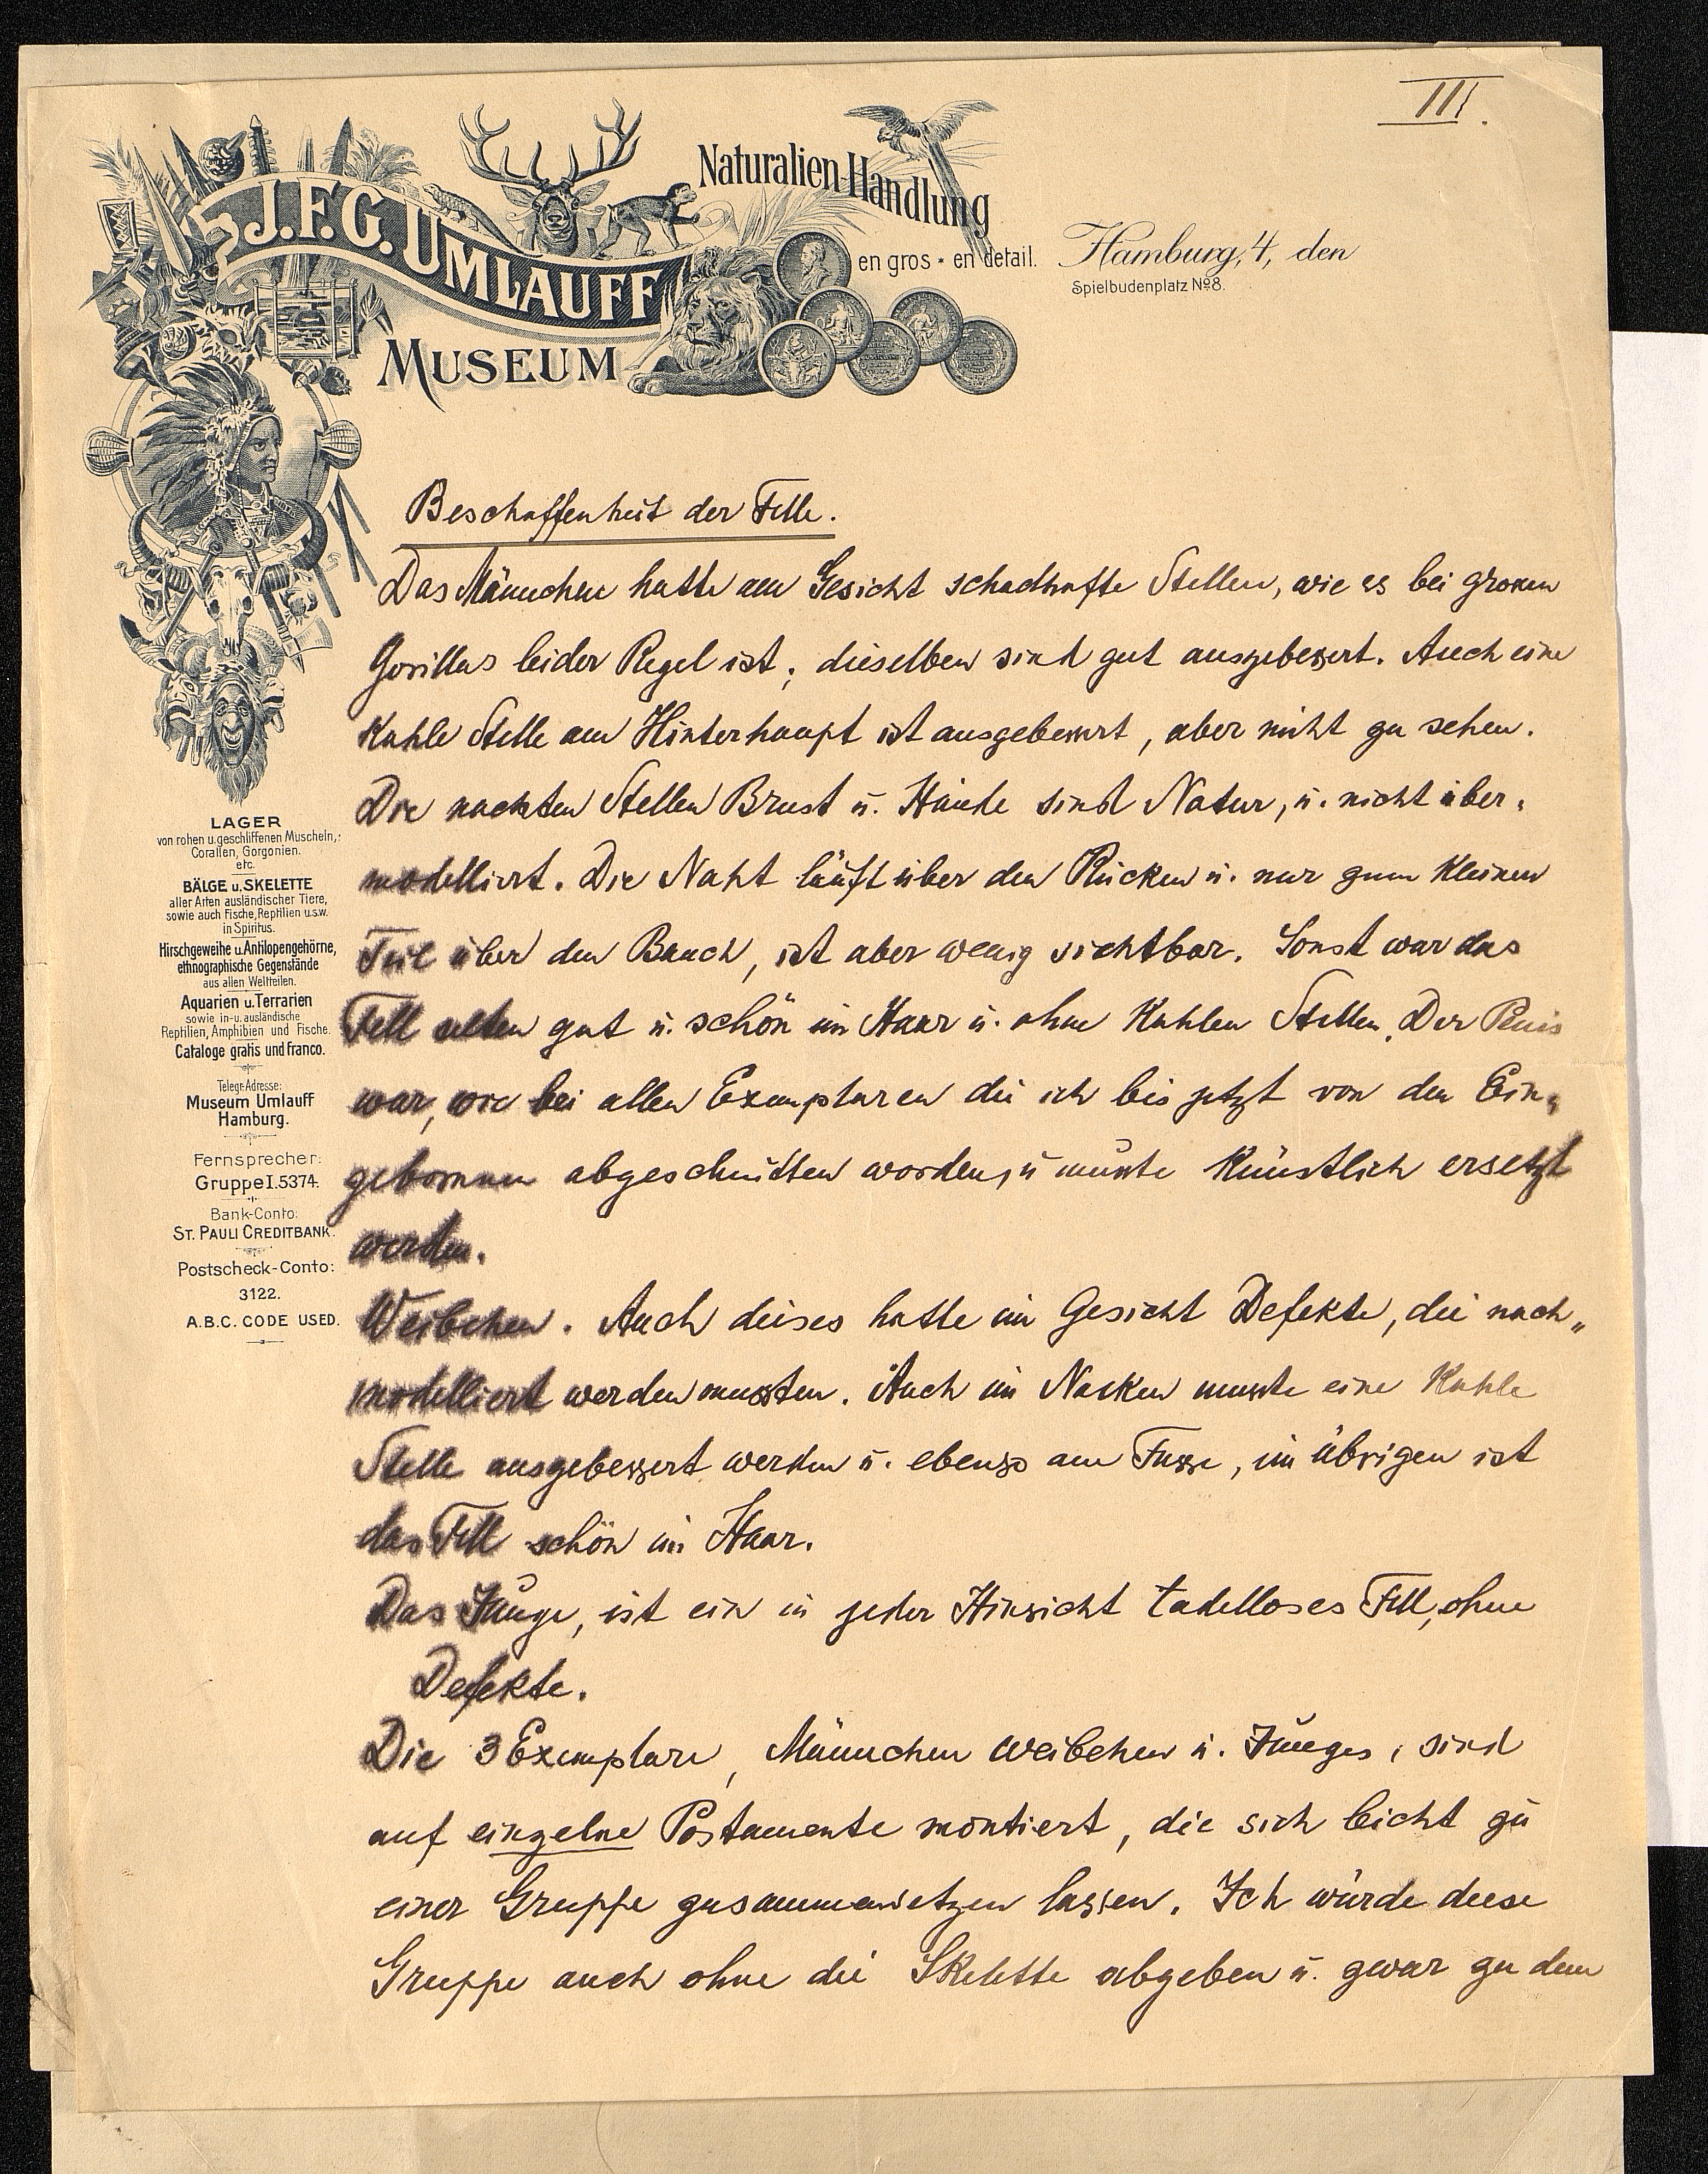 III.
J.F.G. UMLAUFF
MUSEUM
Naturalien-Handlung
en gros * en detail.
Hamburg, 4, den
Spielbudenplatz No 8.
LAGER
von rohen u. geschliffenen Muscheln,
Corallen, Gorgonien.
etc.
BÄLGE u. SKELETTE
aller Arten ausländischer Tiere,
sowie auch Fische, Reptilien u.s.w.
in Spiritus.
Hirschgeweihe u. Antilopengehörne,
ethnographische Gegenstände
aus allen Weltteilen.
Aquarien u. Terrarien
sowie in- u. ausländische
Reptilien, Amphibien und Fische.
Cataloge gratis und franco.
Telegr.-Adresse:
Museum Umlauff
Hamburg.
Fernsprecher:
Gruppe I. 5374.
Bank-Conto:
ST. PAULI CREDITBANK.
Postscheck-Conto:
3122.
A.B.C. CODE USED.
Beschaffenheit der Felle.
Das Männchen hatte am Gesicht schadhafte Stellen, wie es bei grossen
Gorillas leider Regel ist; dieselben sind gut ausgebessert. Auch eine
kahle Stelle am Hinterhaupt ist ausgebessert, aber nicht zu sehen.
Die nackten Stellen Brust u. Hände sind Natur, u. nicht über-
modelliert. Die Naht läuft über den Rücken u. nur zum kleinen
Teil über den Bauch, ist aber wenig sichtbar. Sonst war das
Fell selten gut u. schön im Haar u. ohne kahlen Stellen. Der Penis
war, wie bei allen Exemplaren die ich bis jetzt von den Ein-
gebornen abgeschnitten worden, u musste künstlich ersetzt
werden.
Weibchen. Auch dieses hatte im Gesicht Defekte, die nach„
modelliert werden mussten. Auch im Nacken musste eine kahle
Stelle ausgebessert werden u. ebenso am Fusse, im übrigen ist
das Fell schön im Haar.
Das Junge, ist ein in jeder Hinsicht tadelloses Fell, ohne
Defekte.
Die 3 Exemplare, Männchen Weibchen u. Junges, sind
auf einzelne Postamente montiert, die sich leicht zu
einer Gruppe zusammensetzen lassen. Ich würde diese
Gruppe auch ohne die Skelette abgeben u. zwar zu dem